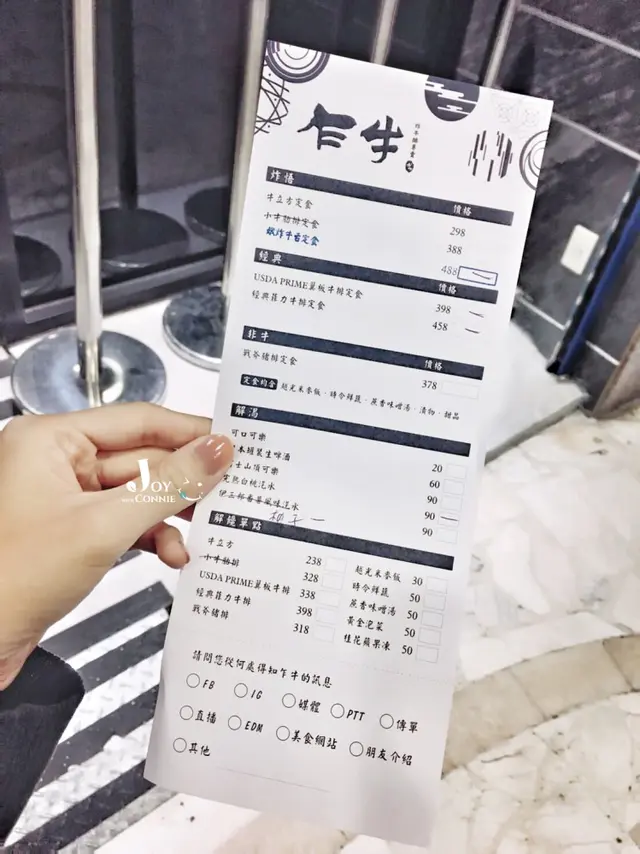 乍牛
炸悟 價格
牛立方定食 298
小牛肋排定食 388
酥炸牛舌定食 488
經典 價格
USDA PRIME 翼板牛排定食 398
經典菲力牛排定食 458
非牛 價格
戰斧豬排定食 378
定食均含 越光米麥飯・時令鮮蔬・蔗香味噌湯・漬物・甜品
解渴
可口可樂 20
本罐裝生啤酒 60
士山頂可樂 90
完熟白桃汽水 90
伊三郎番茶風味汽水 90
柚子
解饞單點
牛立方 238
小牛肋排 328
USDA PRIME 翼板牛排 338
經典菲力牛排 398
戰斧豬排 318
越光米麥飯 30
時令鮮蔬 50
蔗香味噌湯 50
黃金泡菜 50
桂花蘋果凍 50
請問您從何處得知乍牛的訊息
FB IG 媒體 PTT 傳單
直播 EDM 美食網站 朋友介紹
其他
JOY
CONNIE